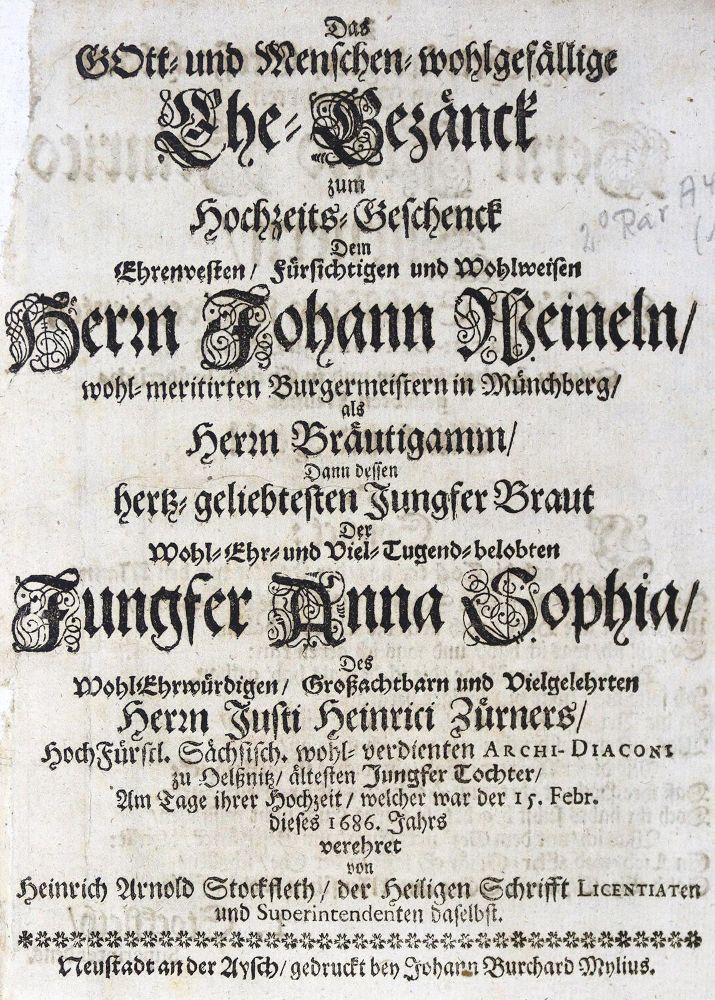 Das
GOtt- und Menschen-wohlgefällige
Ehe-Gezänck
zum
Hochzeits-Geschenck
Dem
Ehrenvesten/ Fürsichtigen und Wohlweisen
Herrn Johann Weineln/
wohl-meritirten Burgermeistern in Münchberg/
als
Herrn Bräutigamm/
Dann dessen
hertz-geliebtesten Jungfer Braut
Der
Wohl-Ehr- und Viel-Tugend-belobten
Jungfer Anna Sophia/
Des
WohlEhrwürdigen/ Großachtbarn und Vielgelehrten
Herrn Justi Heinrici Zürners/
HochFürstl. Sächsisch. wohl-verdienten ARCHI-DIACONI
zu Oelßnitz/ ältesten Jungfer Tochter/
Am Tage ihrer Hochzeit/ welcher war der 15. Febr.
dieses 1686. Jahrs
verehret
von
Heinrich Arnold Stockfleth/ der Heiligen Schrifft LICENTIATen
und Superintendenten daselbst.
Neustadt an der Aysch/ gedruckt bey Johann Burchard Mylius.
2° Rar A4